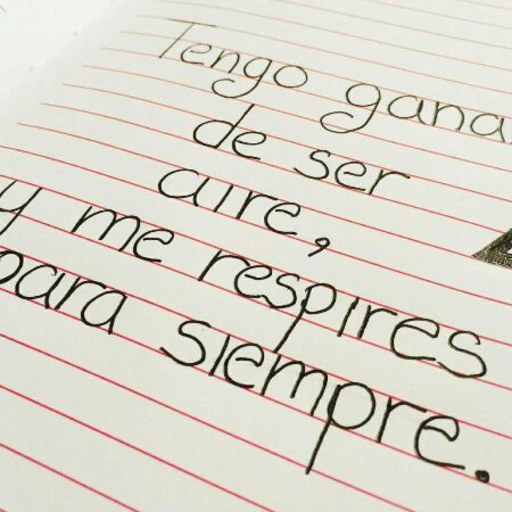 Tengo gana
de ser
aire,
y me respires
para siempre.